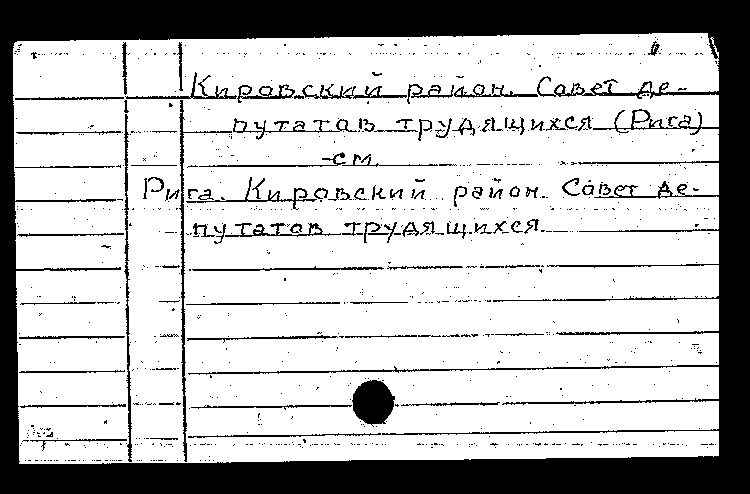 Кировский район. Совет де-
путатов трудящихся (Рига)
-см.
Рига. Кировский район. Совет де-
путатов трудящихся